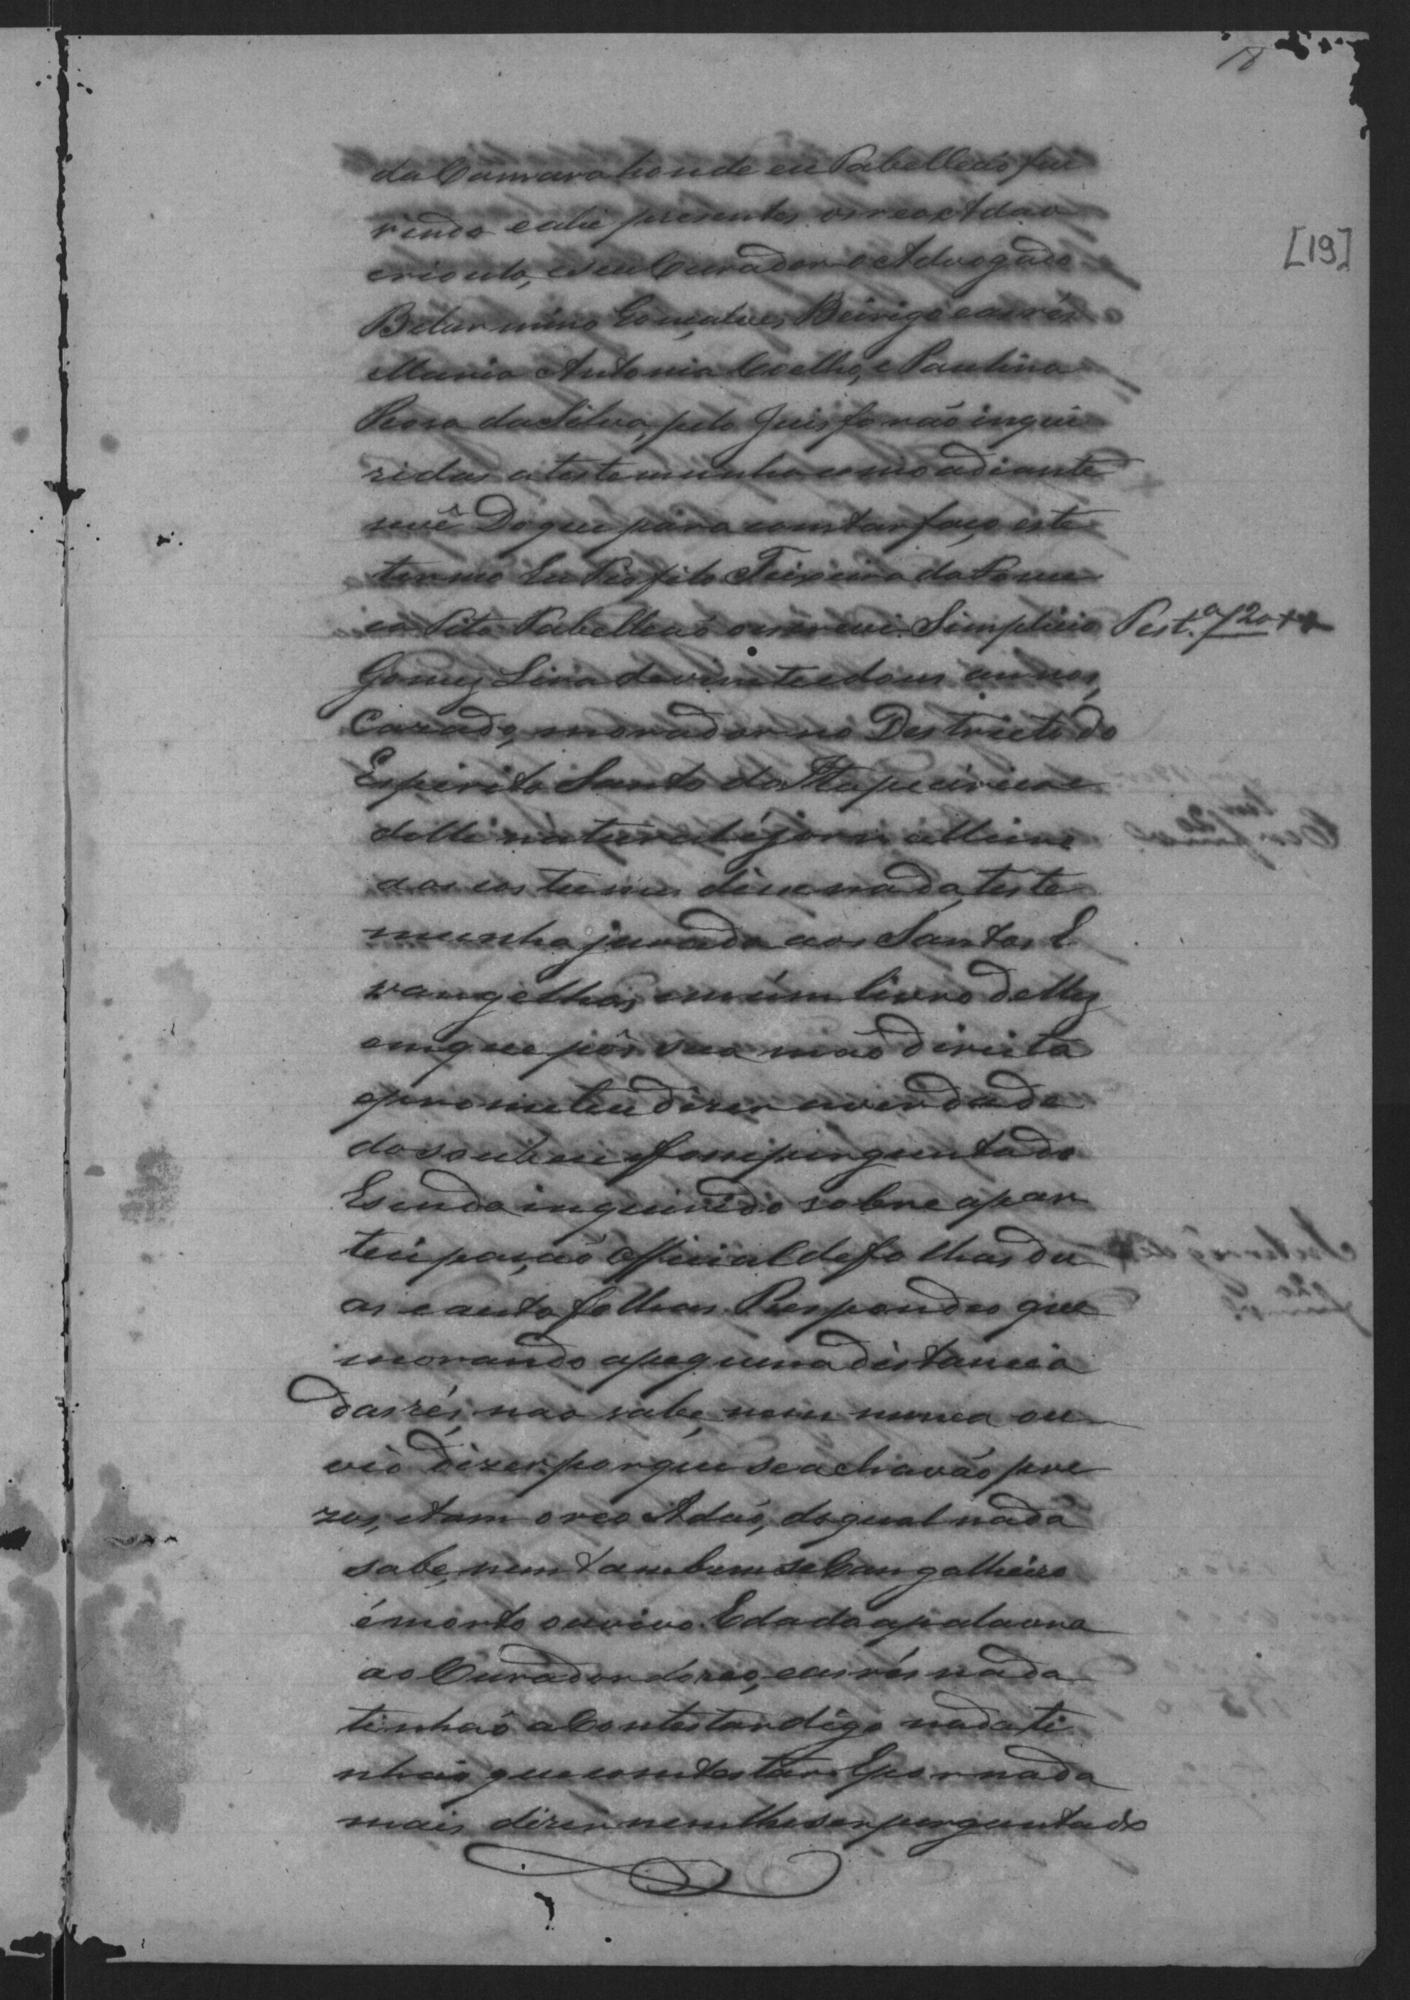 18
[19]
da Camara honde eu Tabelleaõ fui
vindo e ahi presentes os reos Adaõ
crioulo, e seu Curador o Advogado
Belarmino Gonçalves Beirigo e as rés
Maria Antonia Coelho, e Paulina
Rosa da Silva, pelo Juis foraõ inque
ridas a testemunha como adiante
se vê Do que para constar faço este
termo Eu Teixeira da
Tabelleaõ o escrevi. Simplicio
Test.ª 
Gomes Lira de vinte e dous annos,
Cazado, morador no Destricto do
Espirito Santo da Itapecirica
delle natural é jornalleiro
aos costumes disse nada, teste
munha jurada aos Santos E
vangelhos em úm livro delles
em que pôs sua mão direita
e prometeu dizer a verdade
do soubeu e fosse perguntado
E sendo inquirido sobre a par
teipação Official de folhas du
as e auto folhas. Respondeo que
morando a pequena distancia
das rés, nao sabe, nem nunca ou
vio dizer porque se achavão pre
zos, e tam o reo Adaõ, do qual nada
sabe, nem tambem se Cangalheiro
é morto ou vivo. E dada a palavra
ao Curador do reo, e as rés nada
tinhaõ a Contestar digo nada ti
nhaõ que contestar. E por nada
mais dizer nem lhe ser perguntado